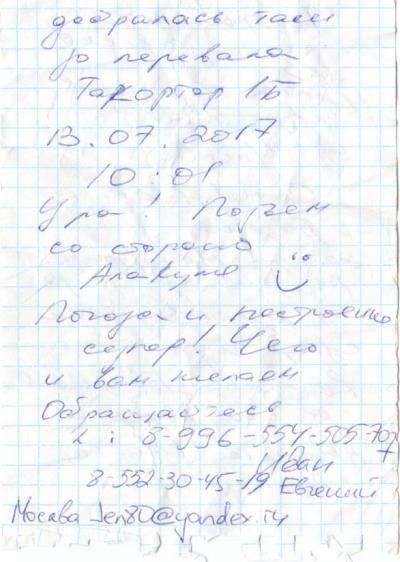 добралась таки
до перевала
Такортор 1Б
13.07.2017
10:01
Ура! Подъем
со стороны
Алакуля
Погода и настроение
супер! Чего
и вам желаем
Обращайтесь
: 8-996-554-505-707
Иван 7
8-552-30-45-19 Евгений
Москва Jen80@yandex.ru